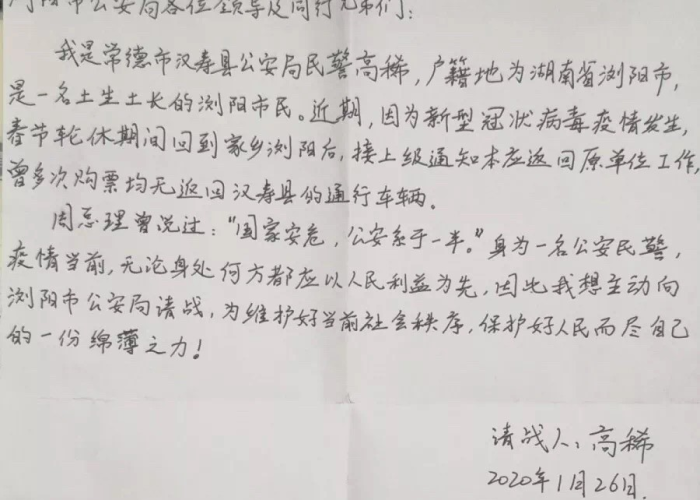 浏阳市公安局各位领导及同行兄弟们：
我是常德市汉寿县公安局民警高稀，户籍地为湖南省浏阳市，
是一名土生土长的浏阳市民。近期，因为新型冠状病毒疫情发生，
春节轮休期间回到家乡浏阳后，接上级通知本应返回原单位工作，
曾多次购票均无返回汉寿县的通行车辆。
周总理曾说过：“国家安危，公安系于一半。”身为一名公安民警，
疫情当前，无论身处何方都应以人民利益为先，因此我想主动向
浏阳市公安局请战，为维护好当前社会秩序，保护好人民而尽自己
的一份绵薄之力！
请战人：高稀
2020年1月26日.